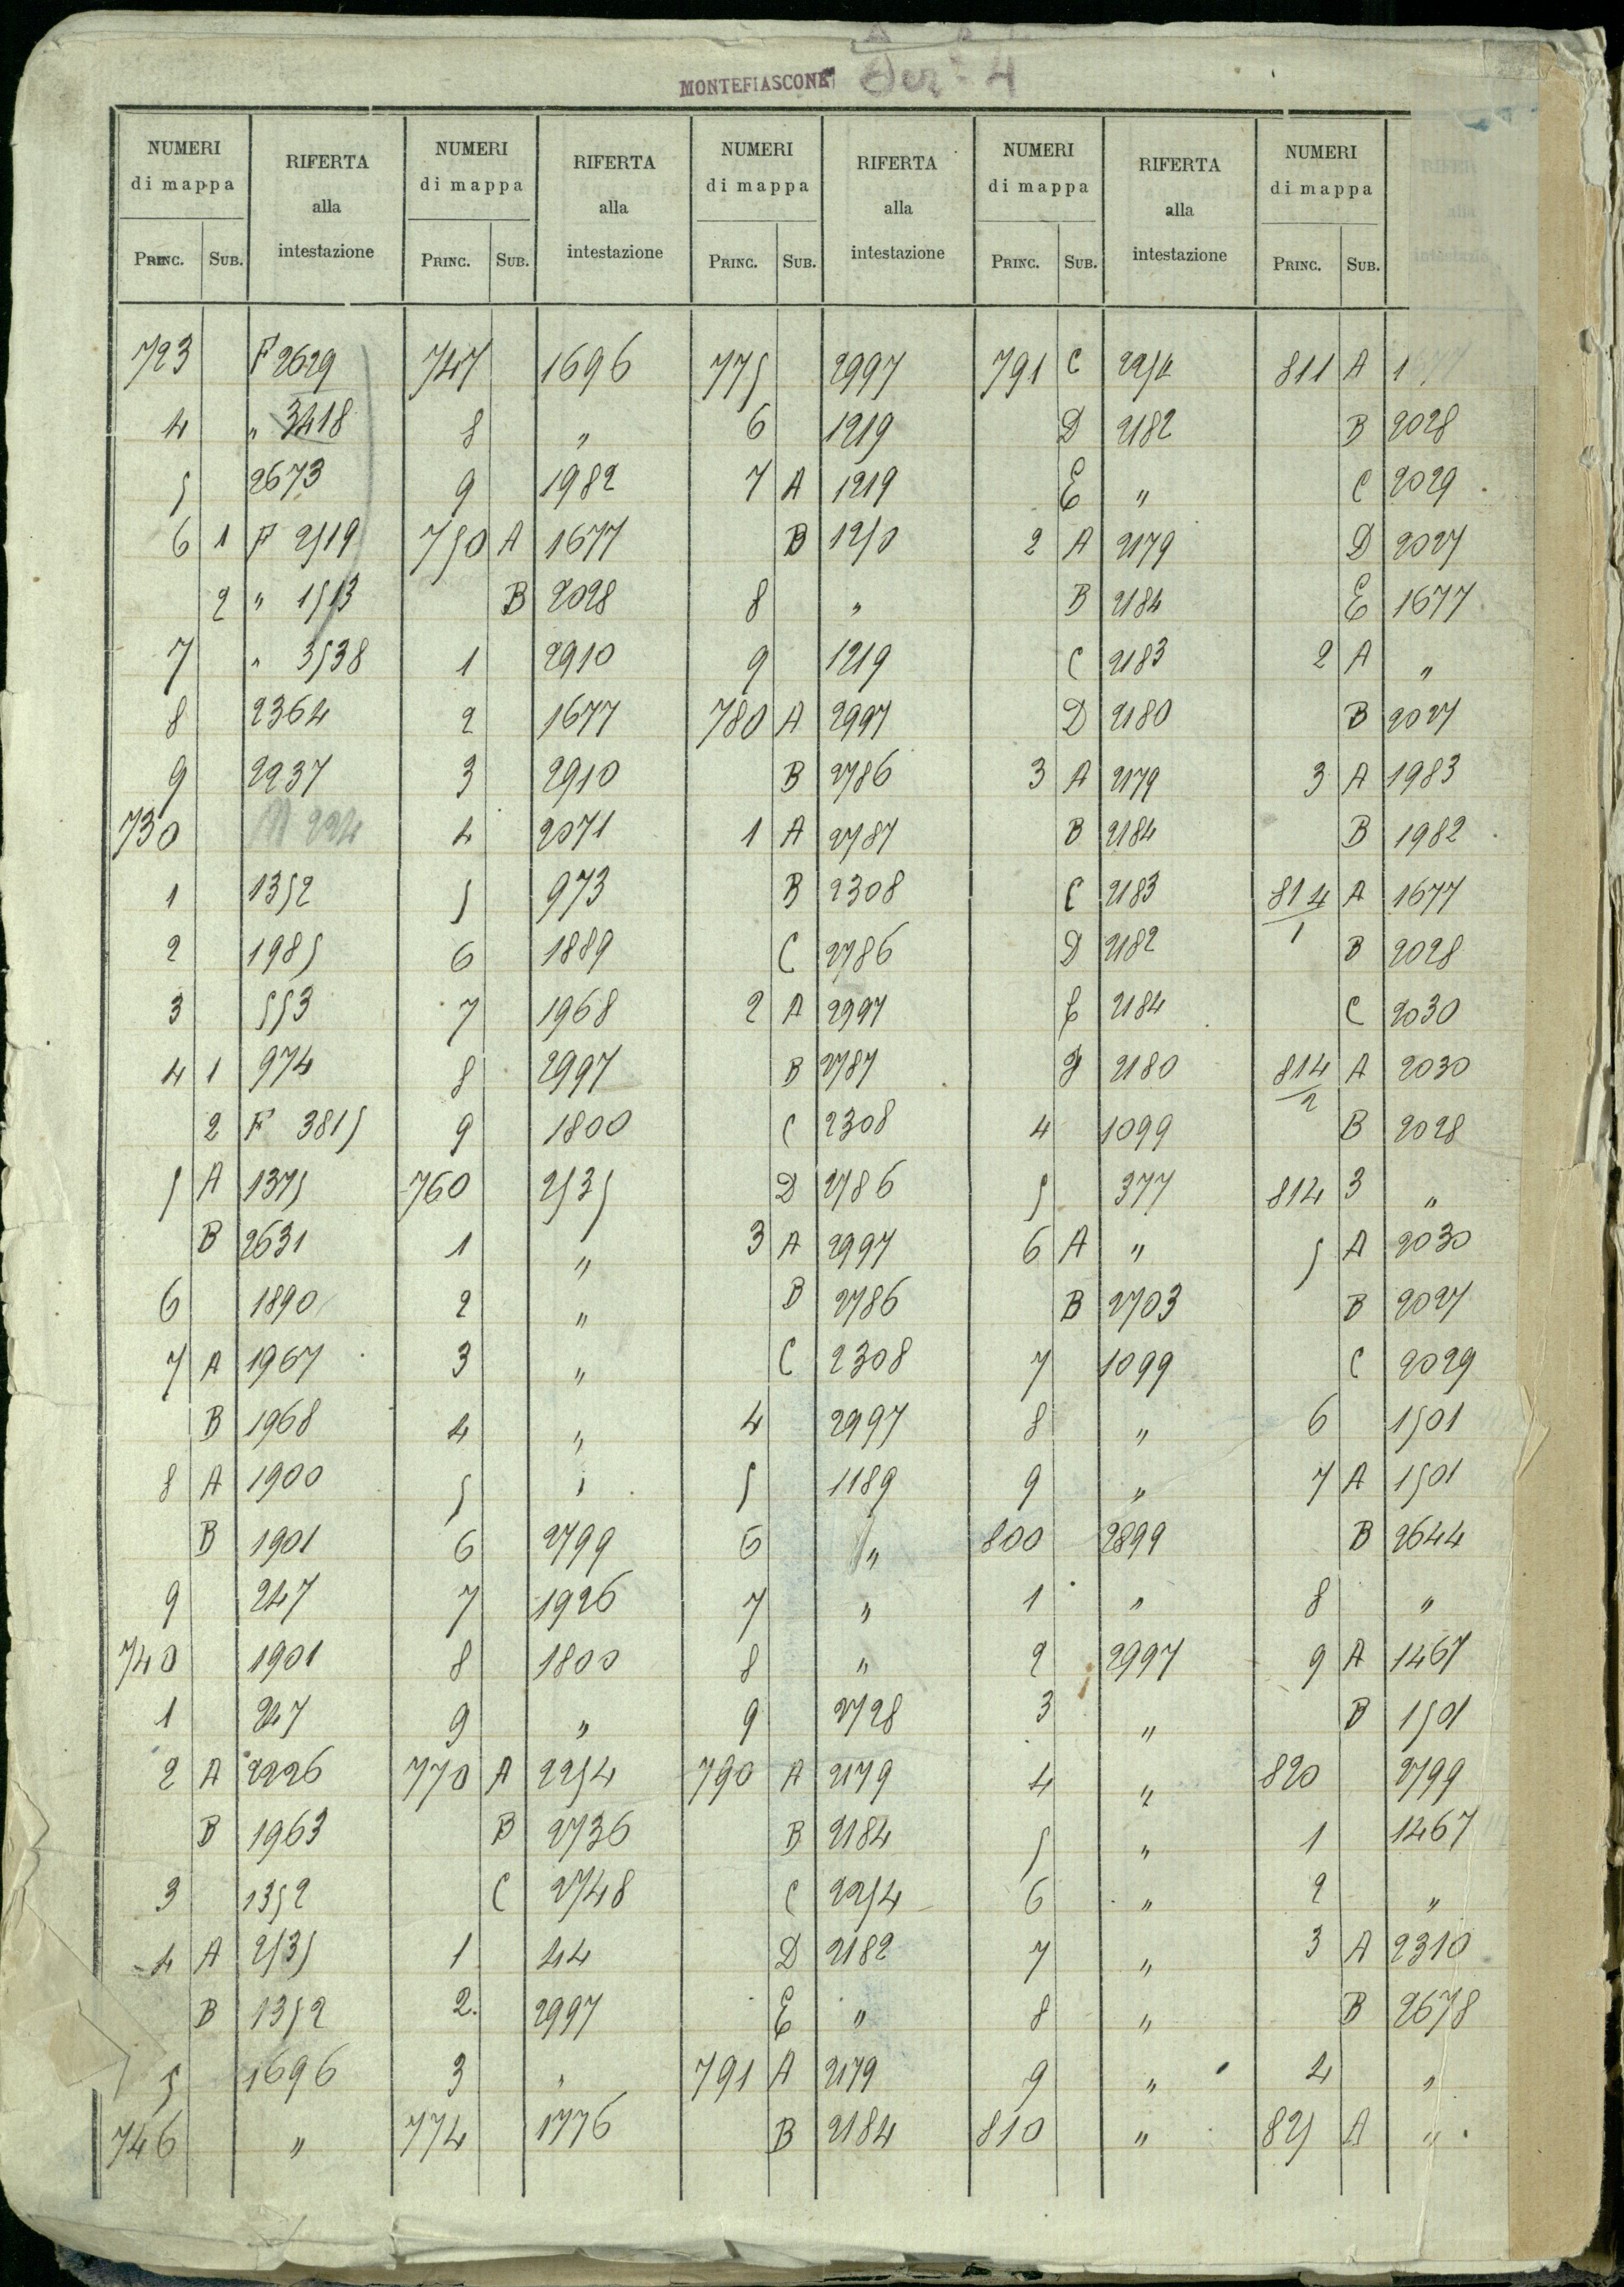 MONTEFIASCONE Sez. 4
NUMERI di mappa RIFERTA alla intestazione NUMERI di mappa RIFERTA alla intestazione NUMERI di mappa RIFERTA alla intestazione NUMERI di mappa RIFERTA alla intestazione NUMERI di mappa
PRINC. SUB. PRINC. SUB. PRINC. SUB. PRINC. SUB. PRINC. SUB.
723 F 2629 747 1696 775 2997 791 C 2254 811 A 1677
4 " 3418 8 " 6 1219 D 2182 B 2028
5 2673 9 1982 7 A 1219 E " C 2029
6 1 F 2519 750 A 1677 B 1250 2 A 2179 D 2027
2 " 1513 B 2028 8 " B 2184 E 1677
7 " 3538 1 2910 9 1219 C 2183 2 A "
8 2364 2 1677 780 A 2997 D 2180 B 2027
9 2237 3 2910 B 2786 3 A 2179 3 A 1983
730 4 2071 1 A 2787 B 2184 B 1982
1 1352 5 973 B 2308 C 2183 814/1 A 1677
2 1985 6 1889 C 2786 D 2182 B 2028
3 553 7 1968 2 A 2997 E 2184 C 2030
4 1 974 8 2997 B 2787 2180 814/2 A 2030
2 F 3815 9 1800 C 2308 4 1099 B 2028
5 A 1375 760 2535 D 2786 5 377 814 3 "
B 2631 1 " 3 A 2997 6 A " 5 A 2030
6 1890 2 " B 2786 B 2703 B 2027
7 A 1967 3 " C 2308 7 1099 C 2029
B 1968 4 " 4 2997 8 " 6 1501
8 A 1900 5 " 5 1189 9 " 7 A 1501
B 1901 6 2799 6 " 800 2899 B 2644
9 247 7 1926 7 " 1 " 8 "
740 1901 8 1800 8 " 2 2997 9 A 1467
1 247 9 " 9 2728 3 " B 1501
2 A 2226 770 A 2254 790 A 2179 4 " 820 2799
B 1963 B 2736 B 2184 5 " 1 1467
3 1352 C 2748 C 2254 6 " 2 "
4 A 2535 1 44 D 2182 7 " 3 A 2310
B 1352 2. 2997 E " 8 " B 2678
5 1696 3 " 791 A 2179 9 " 4 "
746 " 774 1776 B 2184 810 " 825 A "